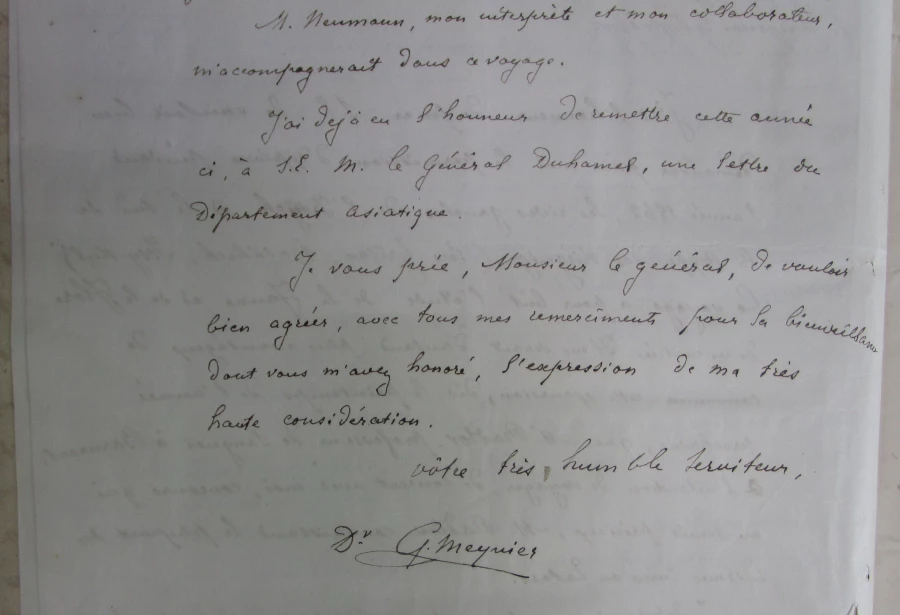 M. Neumann, mon interprète et mon collaborateur,
m'accompagnerait dans ce voyage.
J'ai dejà eu l'honneur de remettre cette année
ci, à S.E. M. le Général Duhamel, une lettre du
Département asiatique.
Je vous prie, Monsieur le général, de vouloir
bien agréer, avec tous mes remerciments pour la bienveillance
dont vous m'avez honoré, l'expression de ma très
haute considération.
vôtre très humble serviteur,
Dr G. Meynier